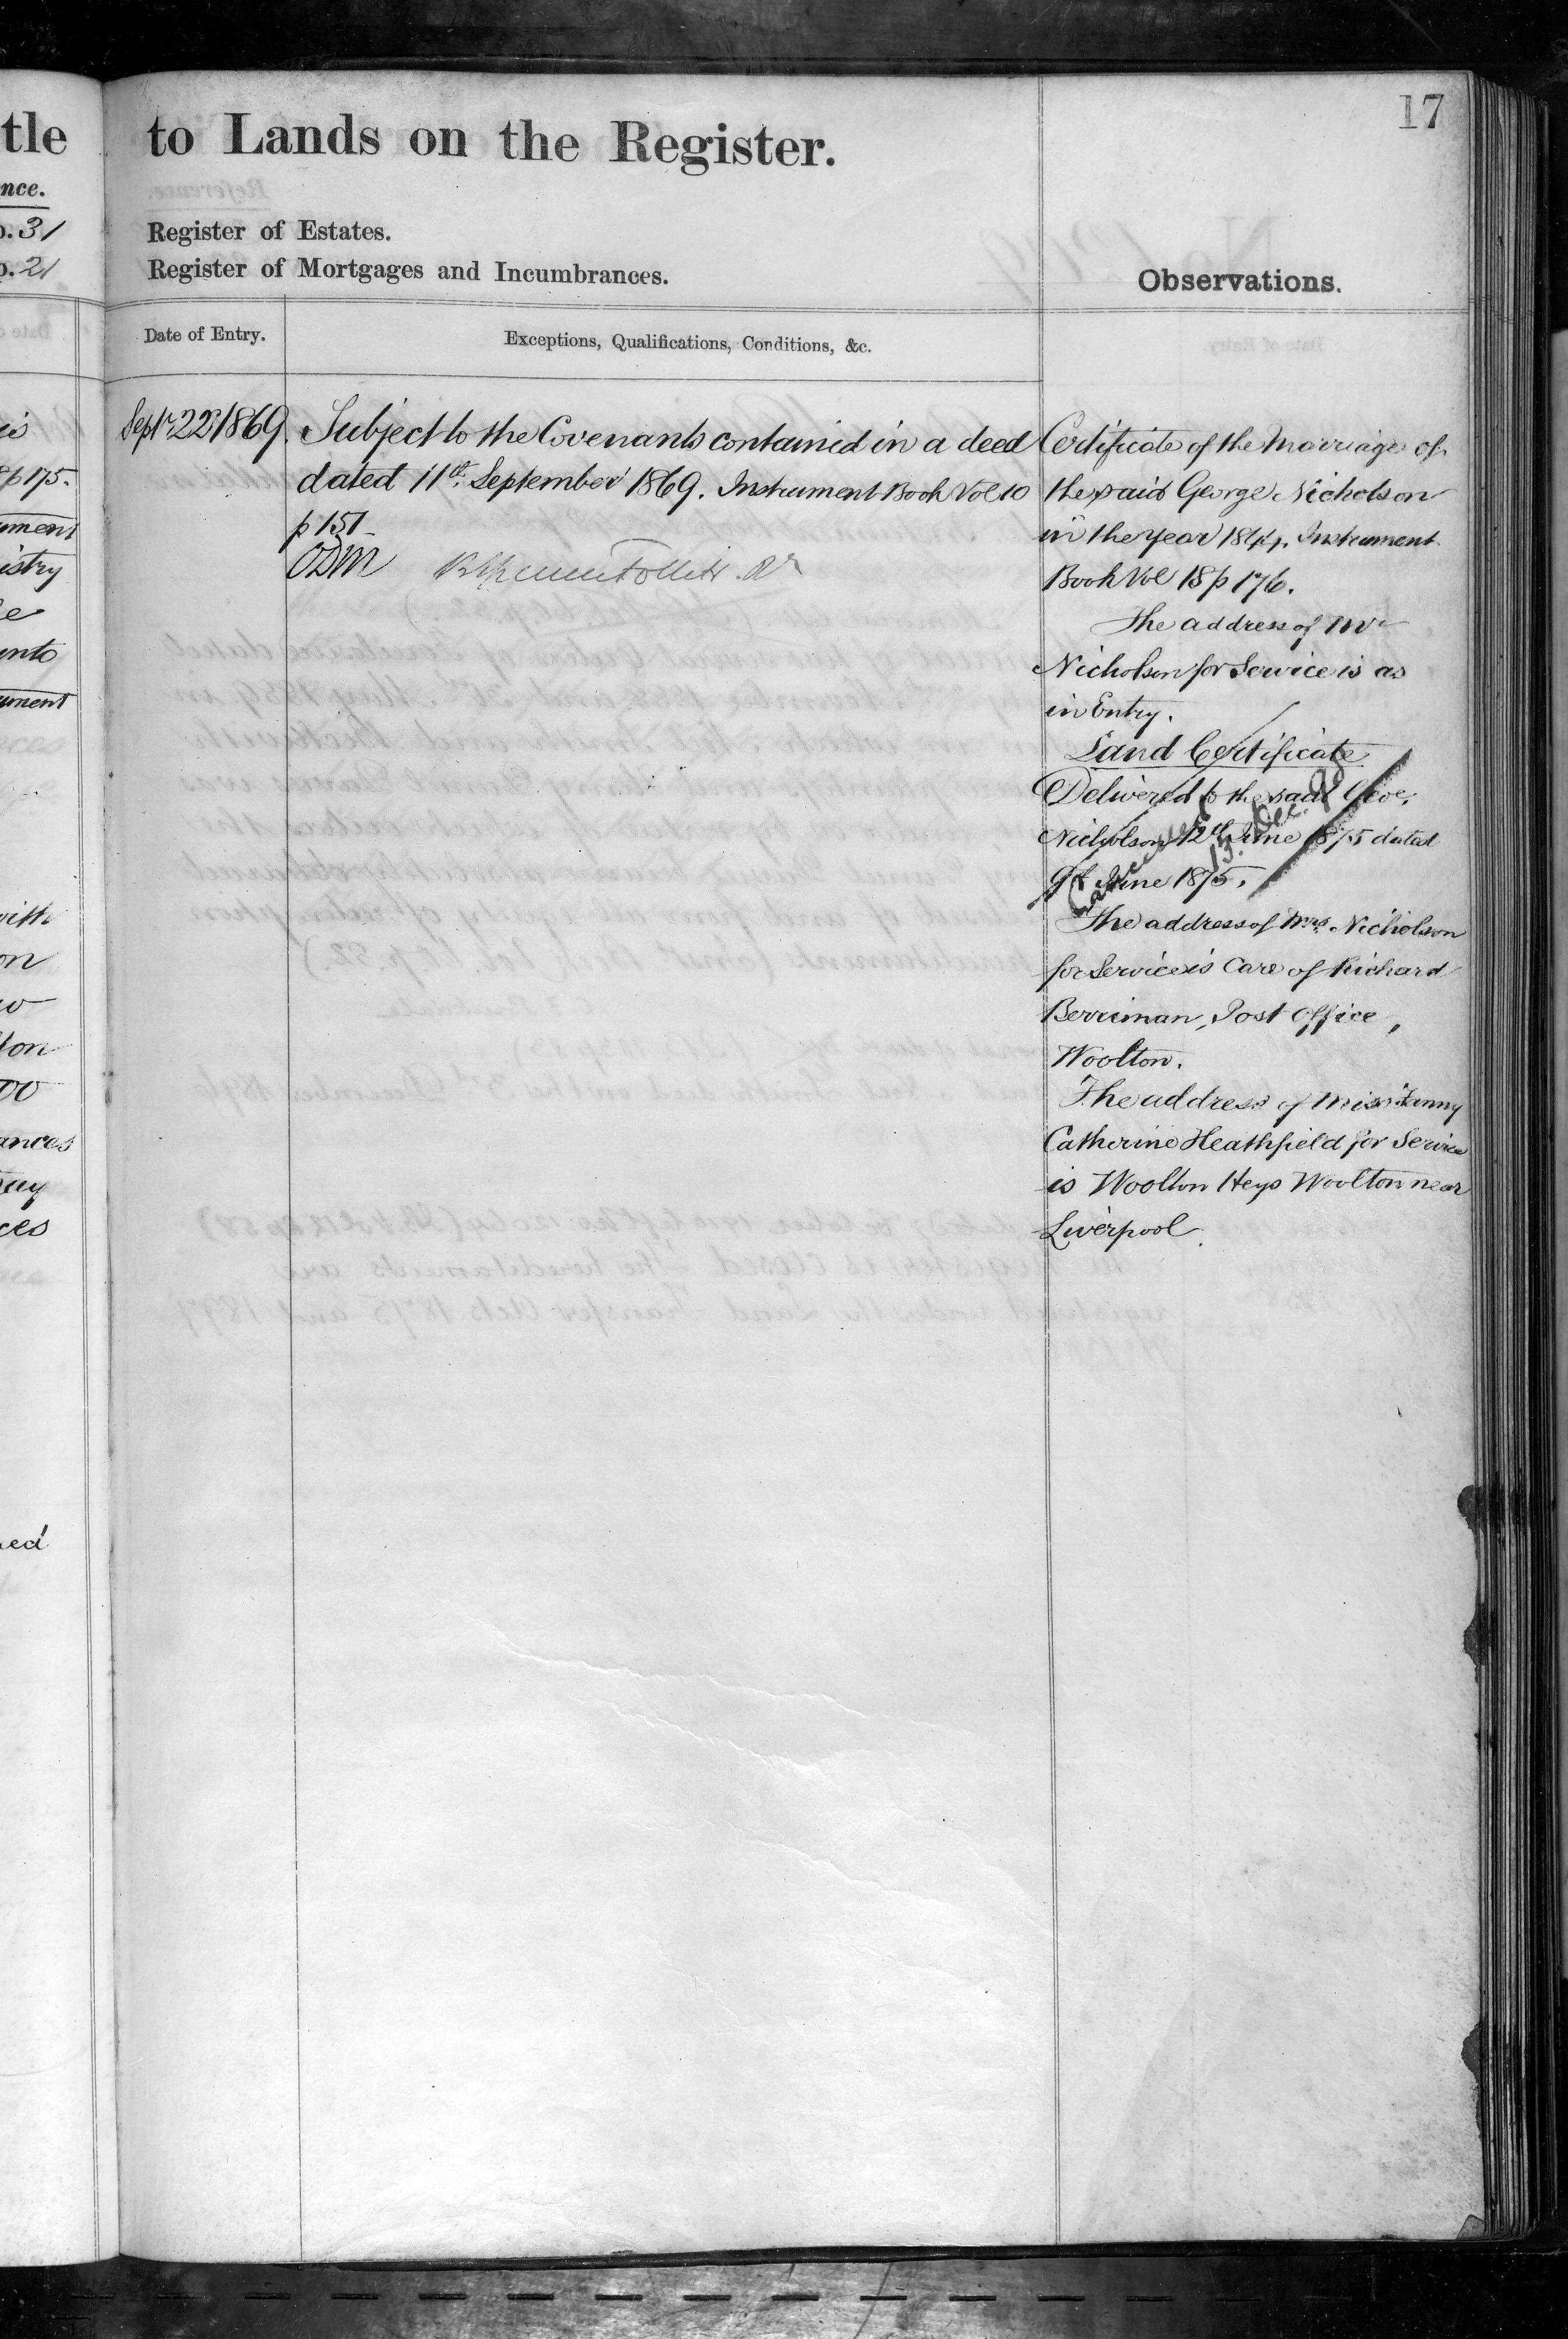 17
tle to Lands on the Register.
nce.
p. 31 Register of Estates.
p. 21 Register of Mortgages and Incumbrances.
Observations.
Date of Entry.
Exceptions, Qualifications, Conditions, &c.
Septr 22d 1869. Subject to the Covenants contained in a deed
dated 11th September 1869. Instrument Book Vol 10
p 151
Certificate of the Marriage of
the said George Nicholson
in the year 1844. Instrument
Book Vol 18 p 176.
The address of Mr
Nicholson for Service is as
in Entry.
Land Certificate
Delivered to the said Geo.
Nicholson 12th June 1875 dated
9th June 1875.
Cancelled 13. Dec. 98
The address of Mrs. Nicholson
for Service is Care of Richard
Berriman, Post Office,
Woolton.
The address of Miss Fanny
Catherine Heathfield for Service
is Woolton Heys Woolton near
Liverpool.
p 175.
ument
istry
ents
ument
with
on
ton
00
ances
ces